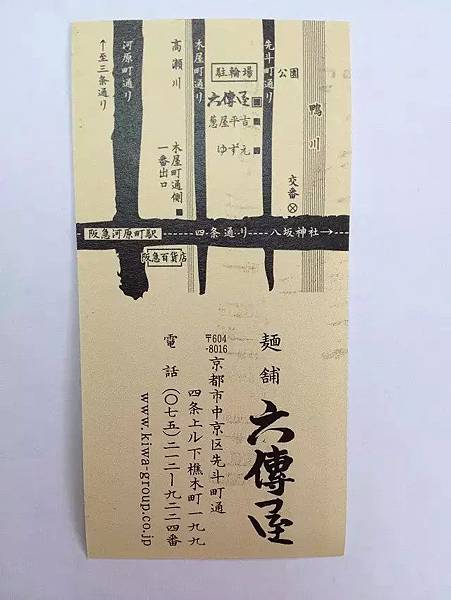 鴨川
公園
先斗町通り
駐輪場
六傳屋
葱屋平吉
ゆず元
交番
木屋町通り
高瀬川
木屋町通側
一番出口
河原町通り
↑至三条通り
阪急河原町駅----四条通り-----八坂神社→---
阪急百貨店
麺舗
六傳屋
〒604-8016
京都市中京区先斗町通
四条上ル下樵木町一九九
電話(〇七五)二一二ー九二二四番
www.kiwa-group.co.jp